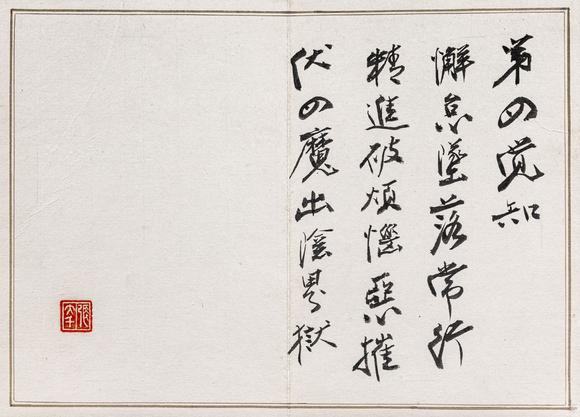 第四覺知
懈怠墜落常行
精進破煩惱惡摧
伏四魔出陰界獄
張大千